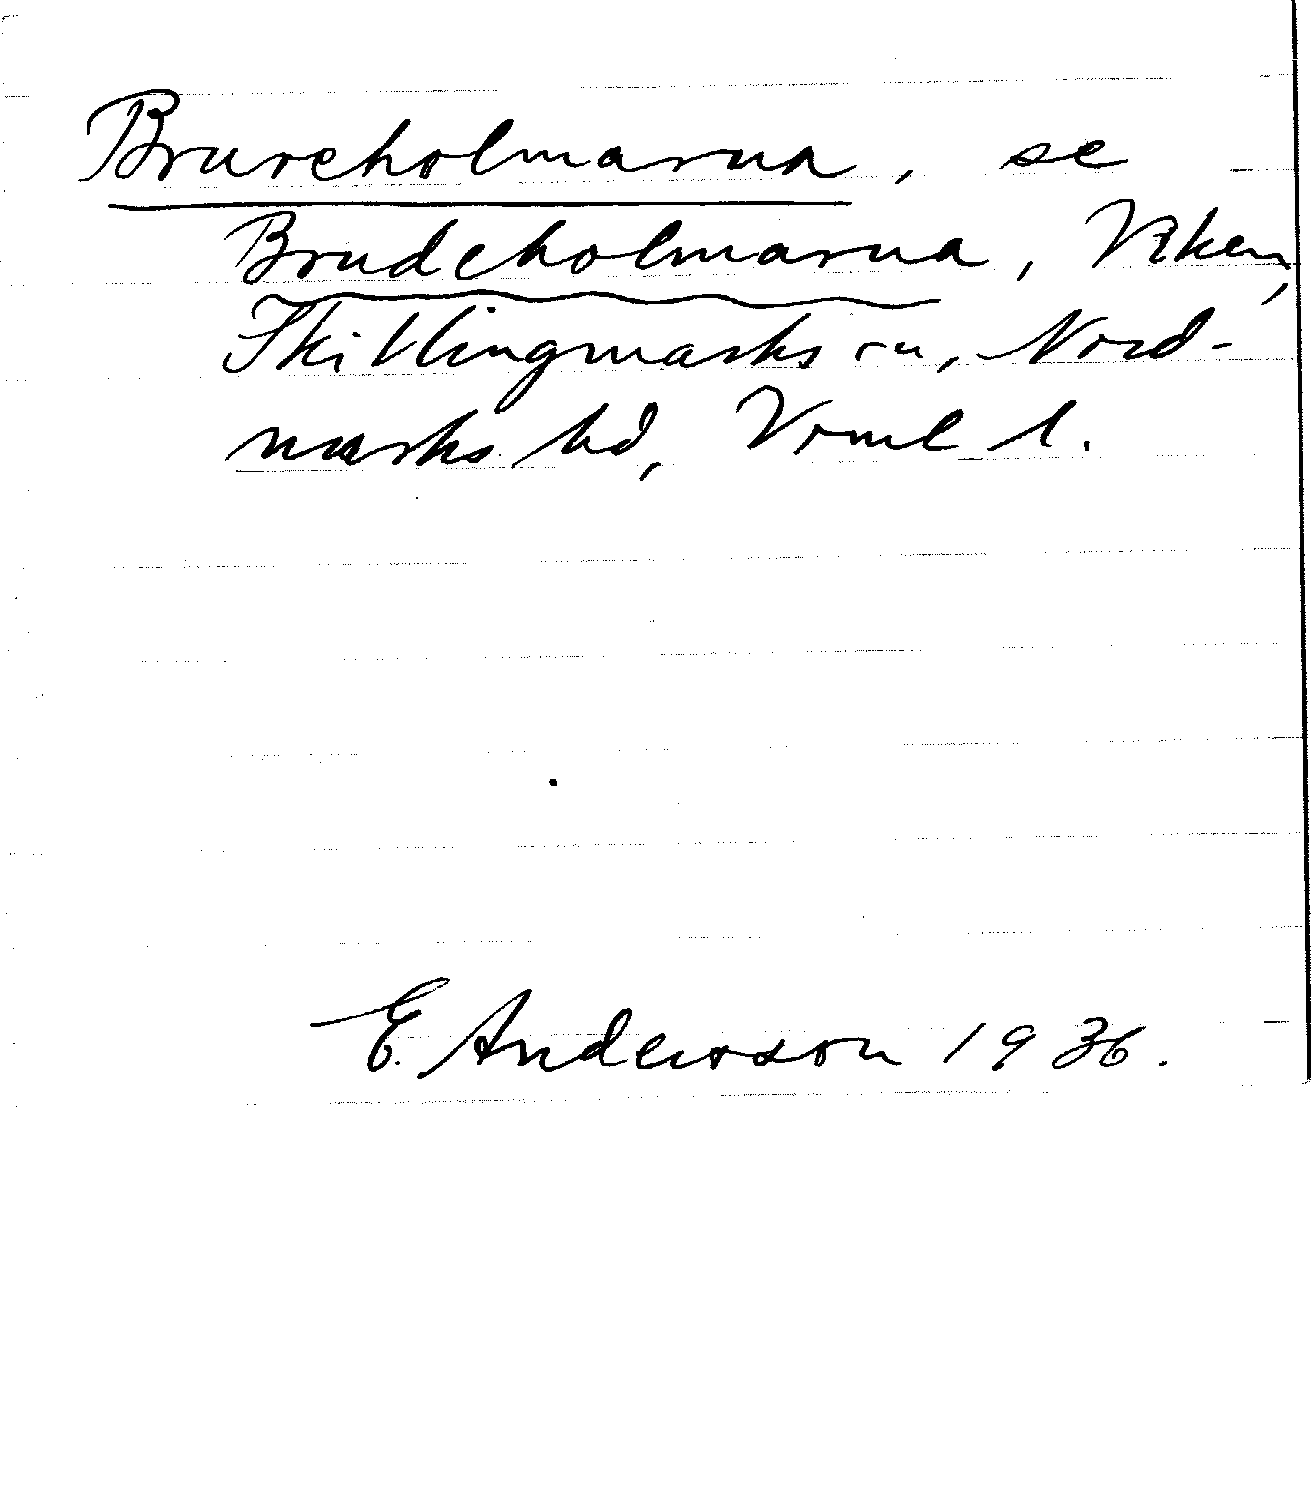 Brureholmarna, se
Brudeholmarna, Viken,
Skillingmarks sn, Nord-
marks hd, Vrml l.
E. Anderson 1936.